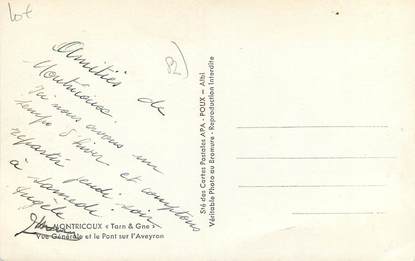 Lot
82
Amitiés de
Montricoux.
Ici nous avons un
temps d'hiver et comptons
repartir jeudi soir
à samedi
Angèle
MONTRICOUX « Tarn & Gne »
Vue Générale et le Pont sur l'Aveyron
Sté des Cartes Postales APA - POUX - Albi
Véritable Photo au Bromure - Reproduction Interdite